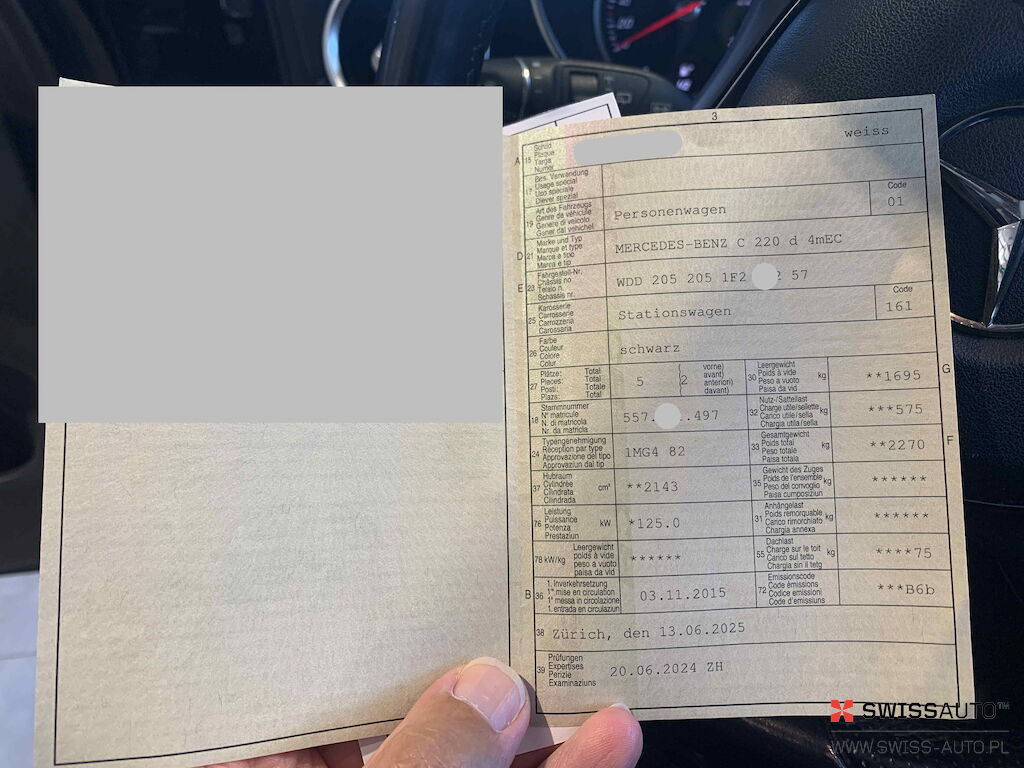 3
A 15 Schild
Plaque
Targa
Numer
weiss
17 Bes. Verwendung
Usage spécial
Uso speciale
Diever spezial
19 Art des Fahrzeugs
Genre de véhicule
Genere di veicolo
Gener dal vehichel
Personenwagen
Code
01
D 21 Marke und Typ
Marque et type
Marca e tipo
Marca e tip
MERCEDES-BENZ C 220 d 4mEC
E 23 Fahrgestell-Nr.
Châssis no
Telaio n.
Schassis nr.
WDD 205 205 1F2 2 57
25 Karosserie
Carrosserie
Carrozzeria
Carossaria
Stationswagen
Code
161
26 Farbe
Couleur
Colore
Colur
schwarz
27 Plätze: Total
Places: Total
Posti: Totale
Plazs: Total
5 (2 vorne)
avant)
anteriori)
davant)
30 Leergewicht
Poids à vide
Peso a vuoto
Paisa da vid
kg
**1695
G
18 Stammnummer
N° matricule
N. di matricola
Nr. da matricla
557. .497
32 Nutz-/Sattellast
Charge utile/sellette
Carico utile/sella
Chargia utila/sella
kg
***575
24 Typengenehmigung
Réception par type
Approvazione del tipo
Approvaziun dal tip
1MG4 82
33 Gesamtgewicht
Poids total
Peso totale
Paisa totala
kg
**2270
F
37 Hubraum
Cylindrée
Cilindrata
Cilindrada
cm³
**2143
35 Gewicht des Zuges
Poids de l'ensemble
Peso del convoglio
Paisa cumposiziun
kg
******
76 Leistung
Puissance
Potenza
Prestaziun
kW
*125.0
31 Anhängelast
Poids remorquable
Carico rimorchiato
Chargia annexa
kg
******
78 kW/kg Leergewicht
poids à vide
peso a vuoto
paisa da vid
******
55 Dachlast
Charge sur le toit
Carico sul tetto
Chargia sin il tetg
kg
****75
B 36 1. Inverkehrsetzung
1re mise en circulation
1a messa in circolazione
1. entrada en circulaziun
03.11.2015
72 Emissionscode
Code émissions
Codice emissioni
Code d'emissiuns
***B6b
38 Zürich, den 13.06.2025
39 Prüfungen
Expertises
Perizie
Examinaziuns
20.06.2024 ZH
SWISSAUTO™
WWW.SWISS-AUTO.PL